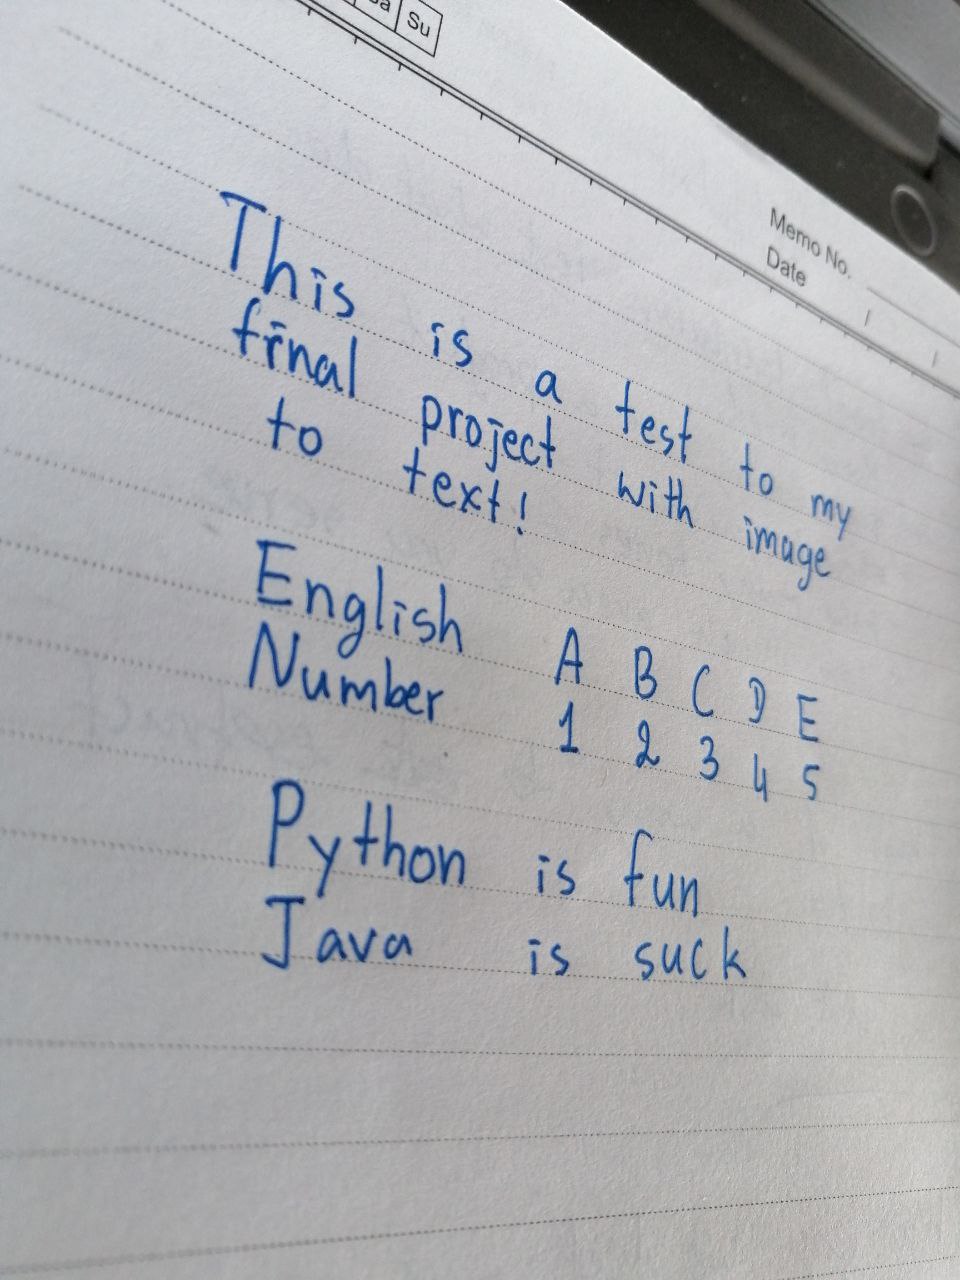 Sa Su
Memo No.
Date
This is a test to my
final project with image
to text!
English A B C D E
Number 1 2 3 4 5
Python is fun
Java is suck